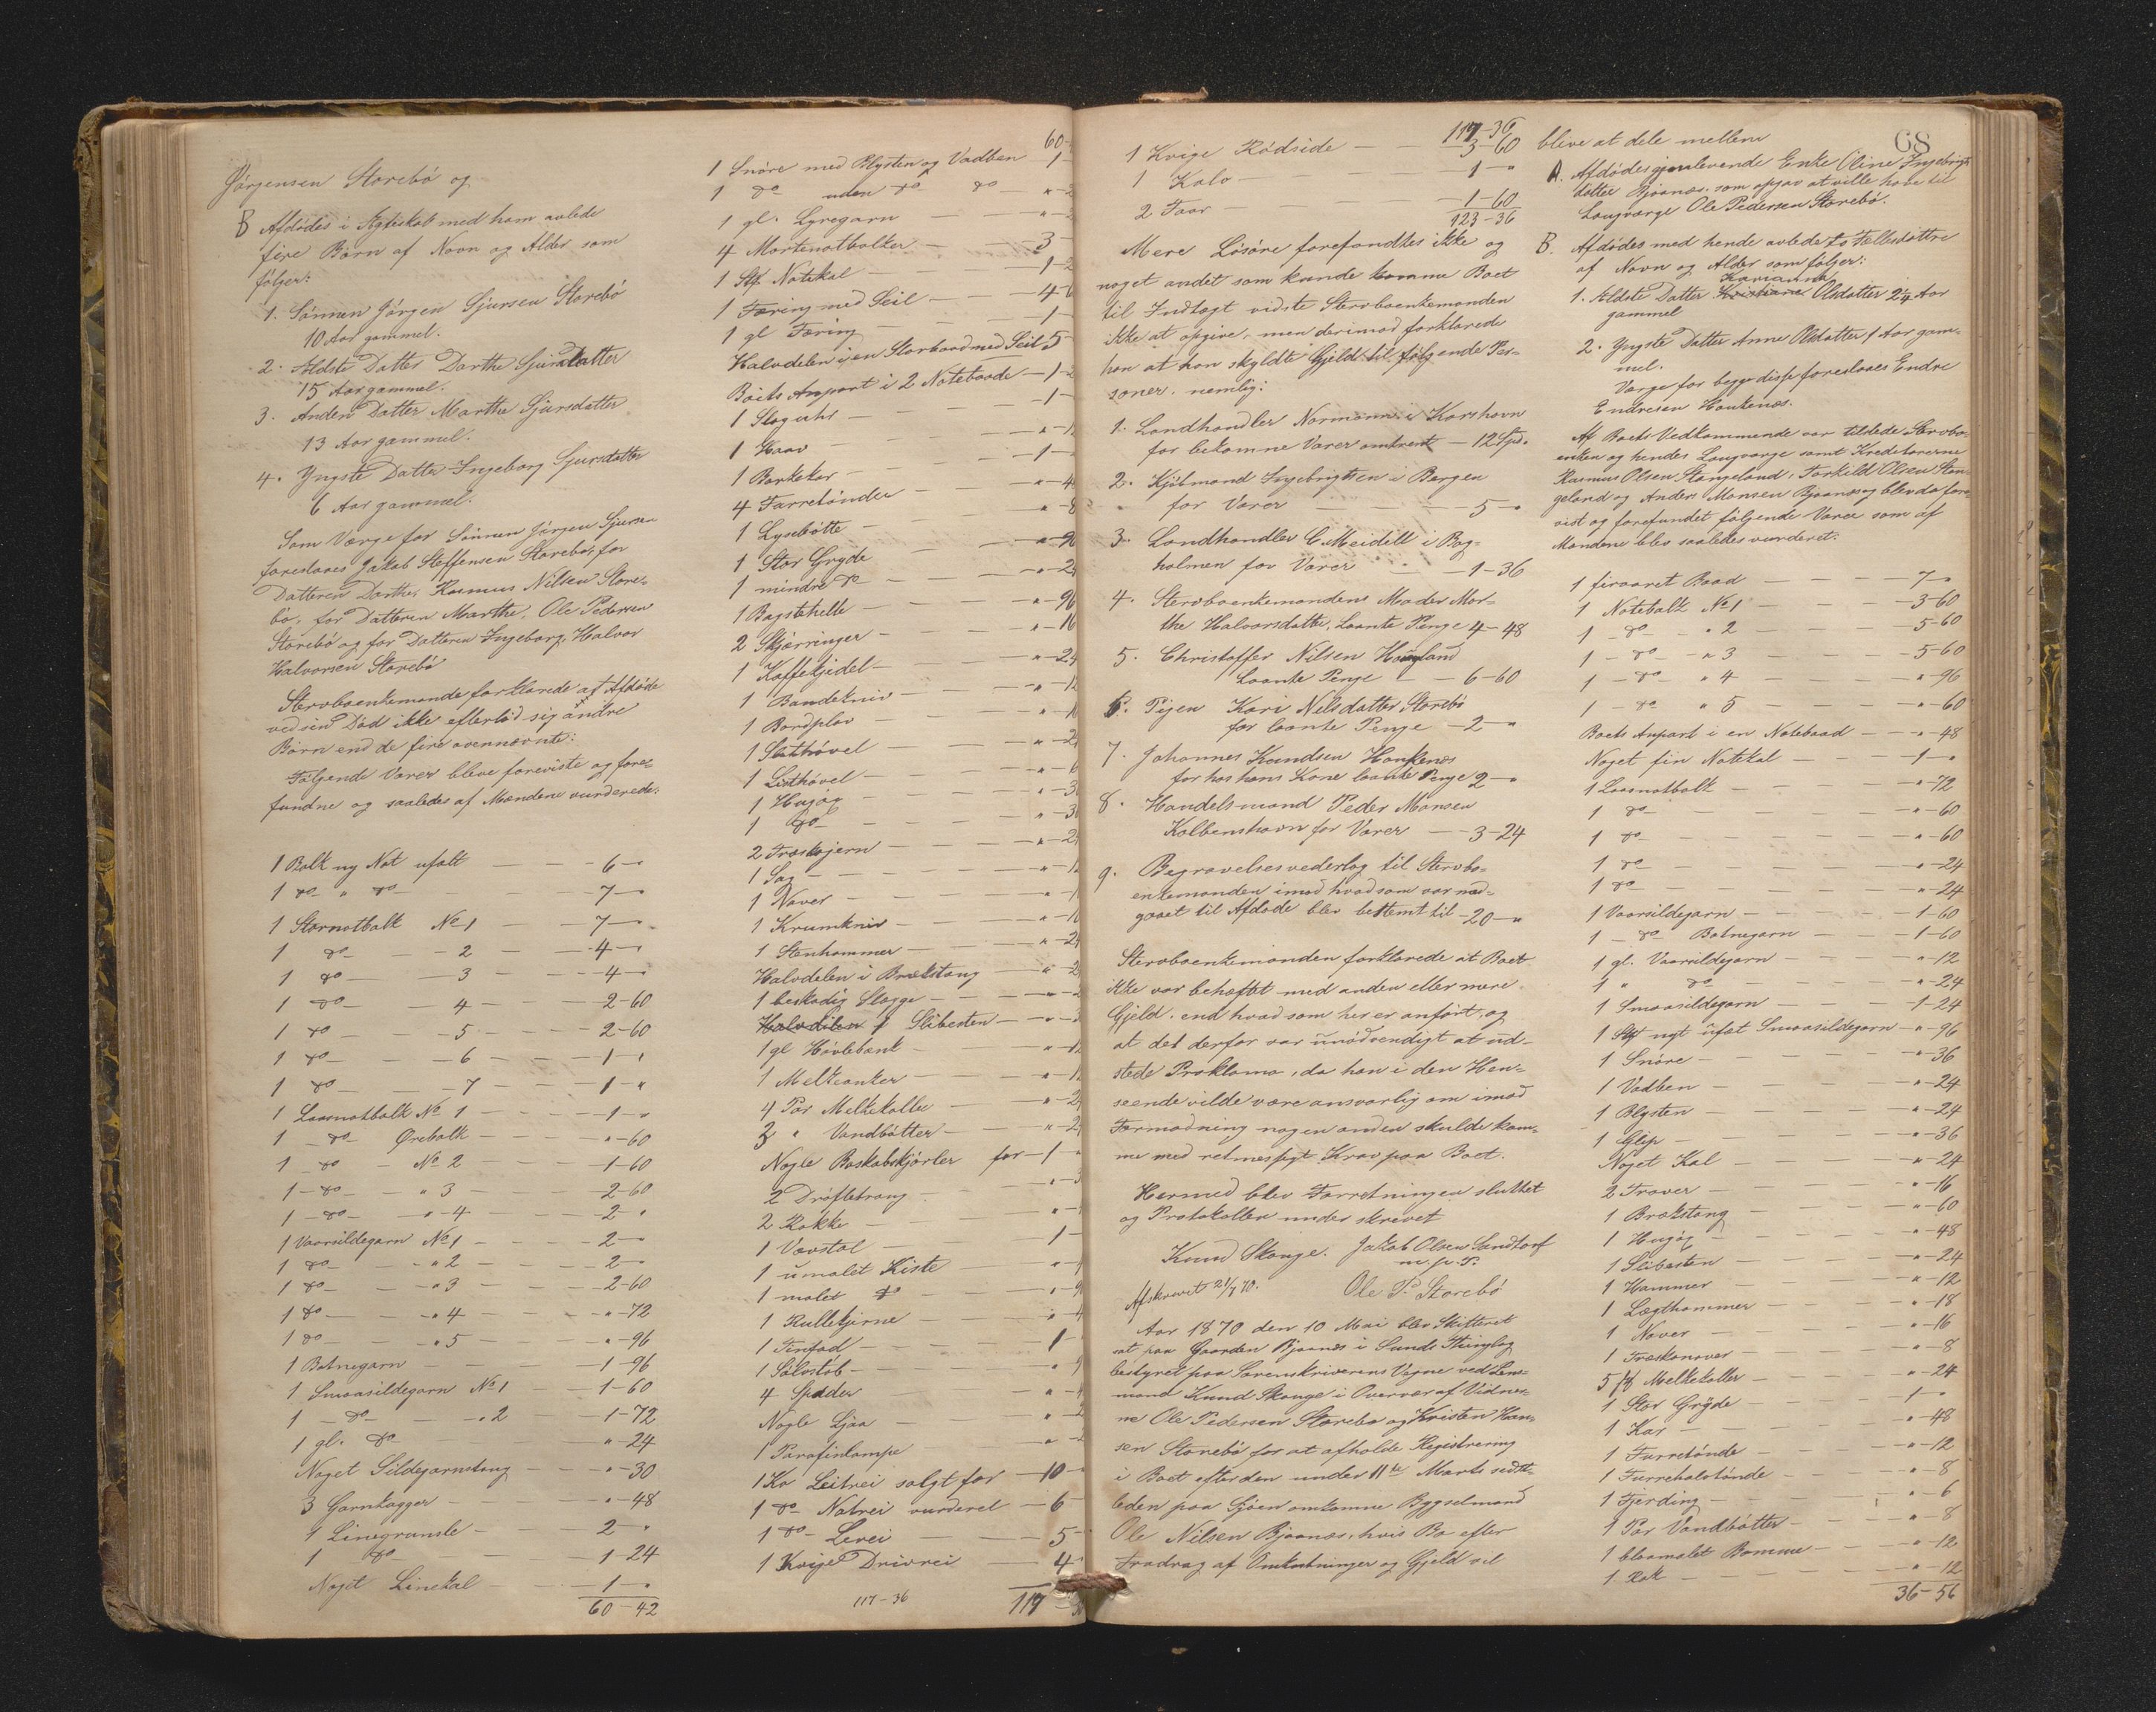 Jørgensen Storebø og
B Afdødes i Ægteskab med ham avlede
fire Børn af Navn og Alder som
følger:
1. Sønnen Jørgen Sjursen Storebø
10 Aar gammel.
2. Ældste Datter Dorthe Sjursdatter
15 Aar gammel.
3. Anden Datter Marthe Sjursdatter
13 Aar gammel.
4. Yngste Datter Ingeborg Sjursdatter
6 Aar gammel.
Som Værge for Sønnen Jørgen Sjursen
foreslaaes Jakob Steffensen Storebø, for
Datteren Dorthe, Rasmus Nilsen Store-
bø, for Datteren Marthe, Ole Pedersen
Storebø og for Datteren Ingeborg, Halvor
Halvorsen Storebø
Stervboenkemande forklarede at Afdøde
ved sin Død ikke efterlod sig andre
Børn end de fire ovennævnte:
Følgende Varer bleve foreviste og fore-
fundne og saaledes af Mændene vurderede:
1 Balk ny Not ufalt — 6 — "
1 do " do — 7 — "
1 Stornotbalk No 1 — 7 — "
1 do — 2 — 4 — "
1 do — 3 — 4 — "
1 do — 4 — 2-60
1 do — 5 — 2-60
1 do — 6 — 1 - "
1 do — 7 — 1 - "
1 Laasnotbalk No 1 — 1 — "
1 do Ørebalk — " -60
1 do — No 2 — 1-60
1 do — " 3 — 2-60
1 do — " 4 — 2 - "
1 Vaarsildegarn No 1 — 2 — "
1 do — " 2 — 2 — "
1 do — " 3 — 2-60
1 do — " 4 — " -72
1 do — " 5 — " -96
1 Botnegarn — 1-96
1 Smaasildegarn No 1 — 1-60
1 — do — " 2 — 1-72
1 gl. do — " -24
Noget Sildegarnstong — " -30
3 Garnkagger — " -48
1 Linegrunsle — 2 — "
1 do — 1-24
Noget Linekal — 1 — "
60-42
60-
1 Snøre med Blysten og Vadben 1 -
1 do uden do do — "
1 gl. Lyregarn — "
4 Mortenotbalker — 3 -
1 Stk Notekal — 1 -
1 Færing med Seil — 4 -
1 gl Færing — 1 -
Halvdelen i en Storbaad med Seil 5 -
Boets Anpart i 2 Notebaade — 1 -
1 Slaguhr — 1 -
1 Haav — "
1 Barkekar — 1 -
4 Furretønder — " - 4
1 Lysebøtte — " - 8
1 Stor Gryde — " - 96
1 mindre do — " - 24
1 Bagstehelle — " - 96
2 Skjærringer — " - 16
1 Kaffekjedel — " - 24
1 Baandekniv — " - 12
1 Bordplov — "
1 Sletthøvel — "
1 Listhøvel — "
1 Hugøx — "
1 do — "
2 Træskojern — "
1 Sag — "
1 Naver — "
1 Krumkniv — "
1 Stenhammer — "
Halvdelen i Brækstang — "
1 beskadig Slægge — "
Halvdelen i Slibesten — "
1 gl Høvlebænk — "
1 Melkeanker — "
4 Par Melkekoller — "
3 " Vandbøtter — "
Nogle Boskabskjørler for — 1 - "
2 Drøfletroug — "
2 Rokke — "
1 Vævstol — 1 -
1 umalet Kiste — "
1 malet do — "
1 Rullekjerne — "
1 Tinfad — 1
1 Sølvstøb — "
4 Spader — "
Nogle Ljaa — "
1 Parafinlampe — "
1 Ko Leitrei solgt for — 10 -
1 do Natrei vurderet — 6 -
1 do Lerei — 5 -
1 Kvige Drivrei — 4
117-36
117
117-36
1 Kvige Rødside — 3-60
1 Kalv — 1 - "
2 Faar — 1-60
123-36
Mere Løsøre forefandtes ikke og
noget andet som kunde komme Boet
til Indtægt vidste Stervboenkemanden
ikke at opgive, men derimod forklarede
han at han skyldte Gjeld til følgende Per-
soner. nemlig:
1. Landhandler Normann i Korshavn
for bekomne Varer omtrent — 12 Spd.
2. Kjøbmand Ingebrigtsen i Bergen
for Varer — 5 — "
3. Landhandler C. Meidell i Bag-
holmen for Varer — 1-36
4. Stervboenkemandens Moder Mar-
the Halvorsdatter, laante Penge 4-48
5. Christoffer Nilsen Haugland
laante Penge — 6-60
6. Pigen Kari Nilsdatter Storebø
for laante Penge — 2 — "
7. Johannes Knudsen Haukenæs
for hos hans Kone laante Penge 2 — "
8. Handelsmand Peder Monsen
Kolbenshavn for Varer — 3-24
9. Begravelsesvederlag til Stervbo-
enkemanden imod hvad som var med-
gaaet til Afdøde blev bestemt til — 20 — "
Stervboenkemanden forklarede at Boet
ikke var behæftet med anden eller mere
Gjeld, end hvad som her er anført, og
at det derfor var unødvendigt at ud-
stede Proklama, da han i den Hen-
seende vilde være ansvarlig om imod
Formodning nogen anden skulde kom-
me med retmæssigt Krav paa Boet.
Hermed blev Forretningen sluttet
og Protokollen underskrevet
Knud Skauge. Jakob Olsen Sandtorf
m. p. P.
Afskrevet 21/7 70. Ole P. Storebø
Aar 1870 den 10 Mai blev Skifteret
sat paa Gaarden Bjoanes i Sunds Thinglag
bestyret paa Sorenskriverens Vegne ved Lens-
mand Knud Skauge i Overvær af Vidner-
ne Ole Pedersen Storebø og Kristen Han-
sen Storebø for at afholde Registrering
i Boet efter den under 11te Marts sidst-
leden paa Sjøen omkomne Bygselmand
Ole Nilsen Bjoanes, hvis Bo efter
Fradrag af Omkostninger og Gjeld vil
68
blive at dele mellem
A. Afdødes gjenlevende Enke Oline Ingebrigts
datter Bjoanes. som opgav at ville have til
Laugværge Ole Pedersen Storebø.
B. Afdødes med hende avlede to Fællesdøttre
af Navn og Alder som følger:
Karianna
1. Ældste Datter Kristiane Olsdatter 2¼ Aar
gammel
2. Yngste Datter Anne Olsdatter 1 Aar gam-
mel.
Værge for begge disse foreslaaes Endre
Endresen Haukenæs.
Af Boets Vedkommende var tilstede Stervbo-
enken og hendes Laugværge samt Kreditorerne
Rasmus Olsen Stangeland, Torkild Olsen Stan-
geland og Anders Monsen Bjoanes og blev da fore-
vist og forefundet følgende Varer som af
Mændene blev saaledes vurderet:
1 firaaret Baad — 7 — "
1 Notebalk No 1 — 3-60
1 do — " 2 — 5-60
1 — do — " 3 — 5-60
1 — do — " 4 — " -96
1 — do " 5 — " -60
Boets Anpart i en Notebaad — " -48
Noget fin Notekal — 1 — "
1 Laasnotbalk — " -72
1 do — " -60
1 do — " -60
1 do — " -24
1 do — " -24
1 Vaarsildegarn — 1-60
1 — do Botnegarn — 1-60
1 gl. Vaarsildegarn — " -12
1 " do — " -24
1 Smaasildegarn — 1-24
1 Stk nyt ufæt Smaasildegarn — " -96
1 Snøre — " -36
1 Vadben — " -24
1 Blysten — " -24
1 Glip — " -36
Noget Kal — " -24
2 Traver — " -16
1 Brækstang — " -60
1 Hugøx — " -48
1 Slibesten — " -24
1 Hammer — " -12
1 Lægthammer — " -18
1 Naver — " -16
1 Træskonaver — " -8
5 Stk Melkekoller — " -24
1 Stor Gryde — 1 — "
1 Kar — " -48
1 Furretønde — " -12
1 Furrehalvtønde — " -8
1 Fjerding — " -6
1 Par Vandbøtter — " -8
1 blaamalet Bomme — " -12
1 Rok — " -12
36-56